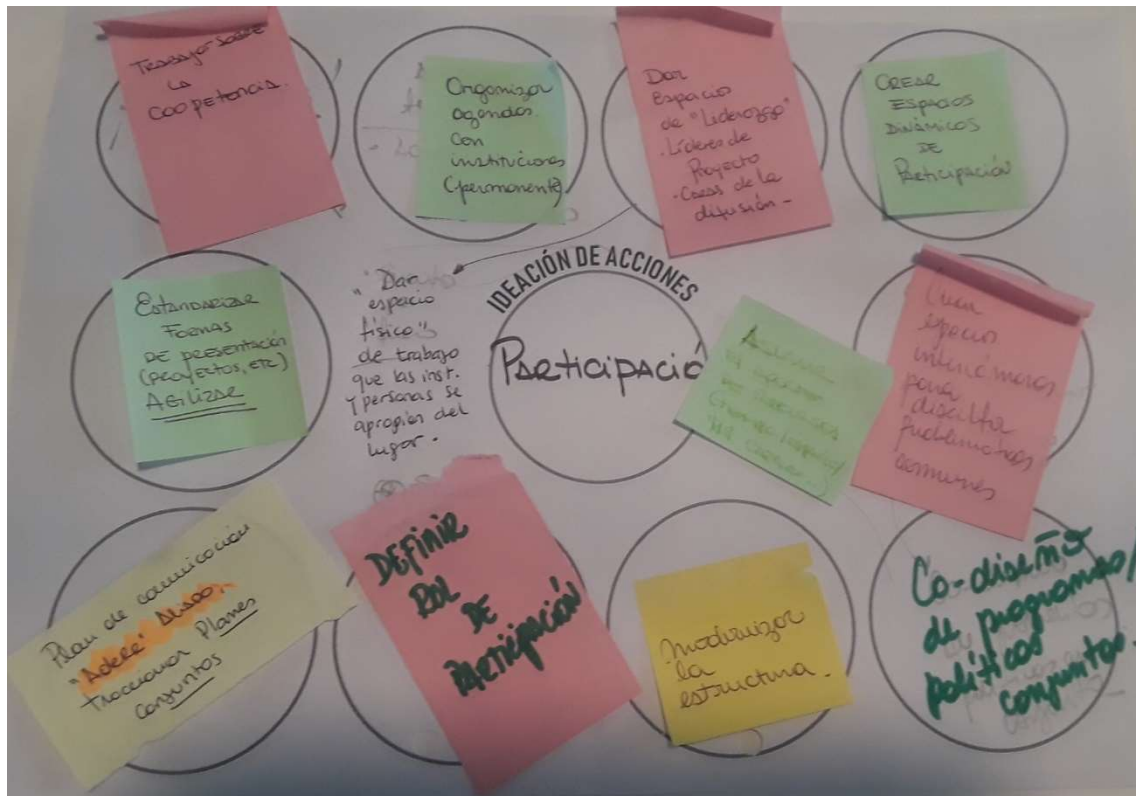 Trabajar sobre
la
coopetencia.
Organizar
agendas
con
instituciones
(permanente).
Dar
espacio
de "Liderazgo"
· Líderes de
Proyecto
· Caras de la
difusión -
CREAR
ESPACIOS
DINÁMICOS
DE
PARTICIPACIÓN
ESTANDARIZAR
FORMAS
DE PRESENTACIÓN
(PROYECTOS, ETC)
AGILIZAR
"Dar
espacio
físico"
de trabajo
que las inst.
y personas se
apropien del
lugar.
IDEACIÓN DE ACCIONES
PARTICIPACIÓ
Crear
espacios
para
problemáticas
comunes
Plan de comunicación
traccionar Planes
conjuntos
DEFINIR
ROL
DE
PARTICIPACIÓN
modernizar
la
estructura.
Co-diseño
de programas/
políticas
conjuntas.